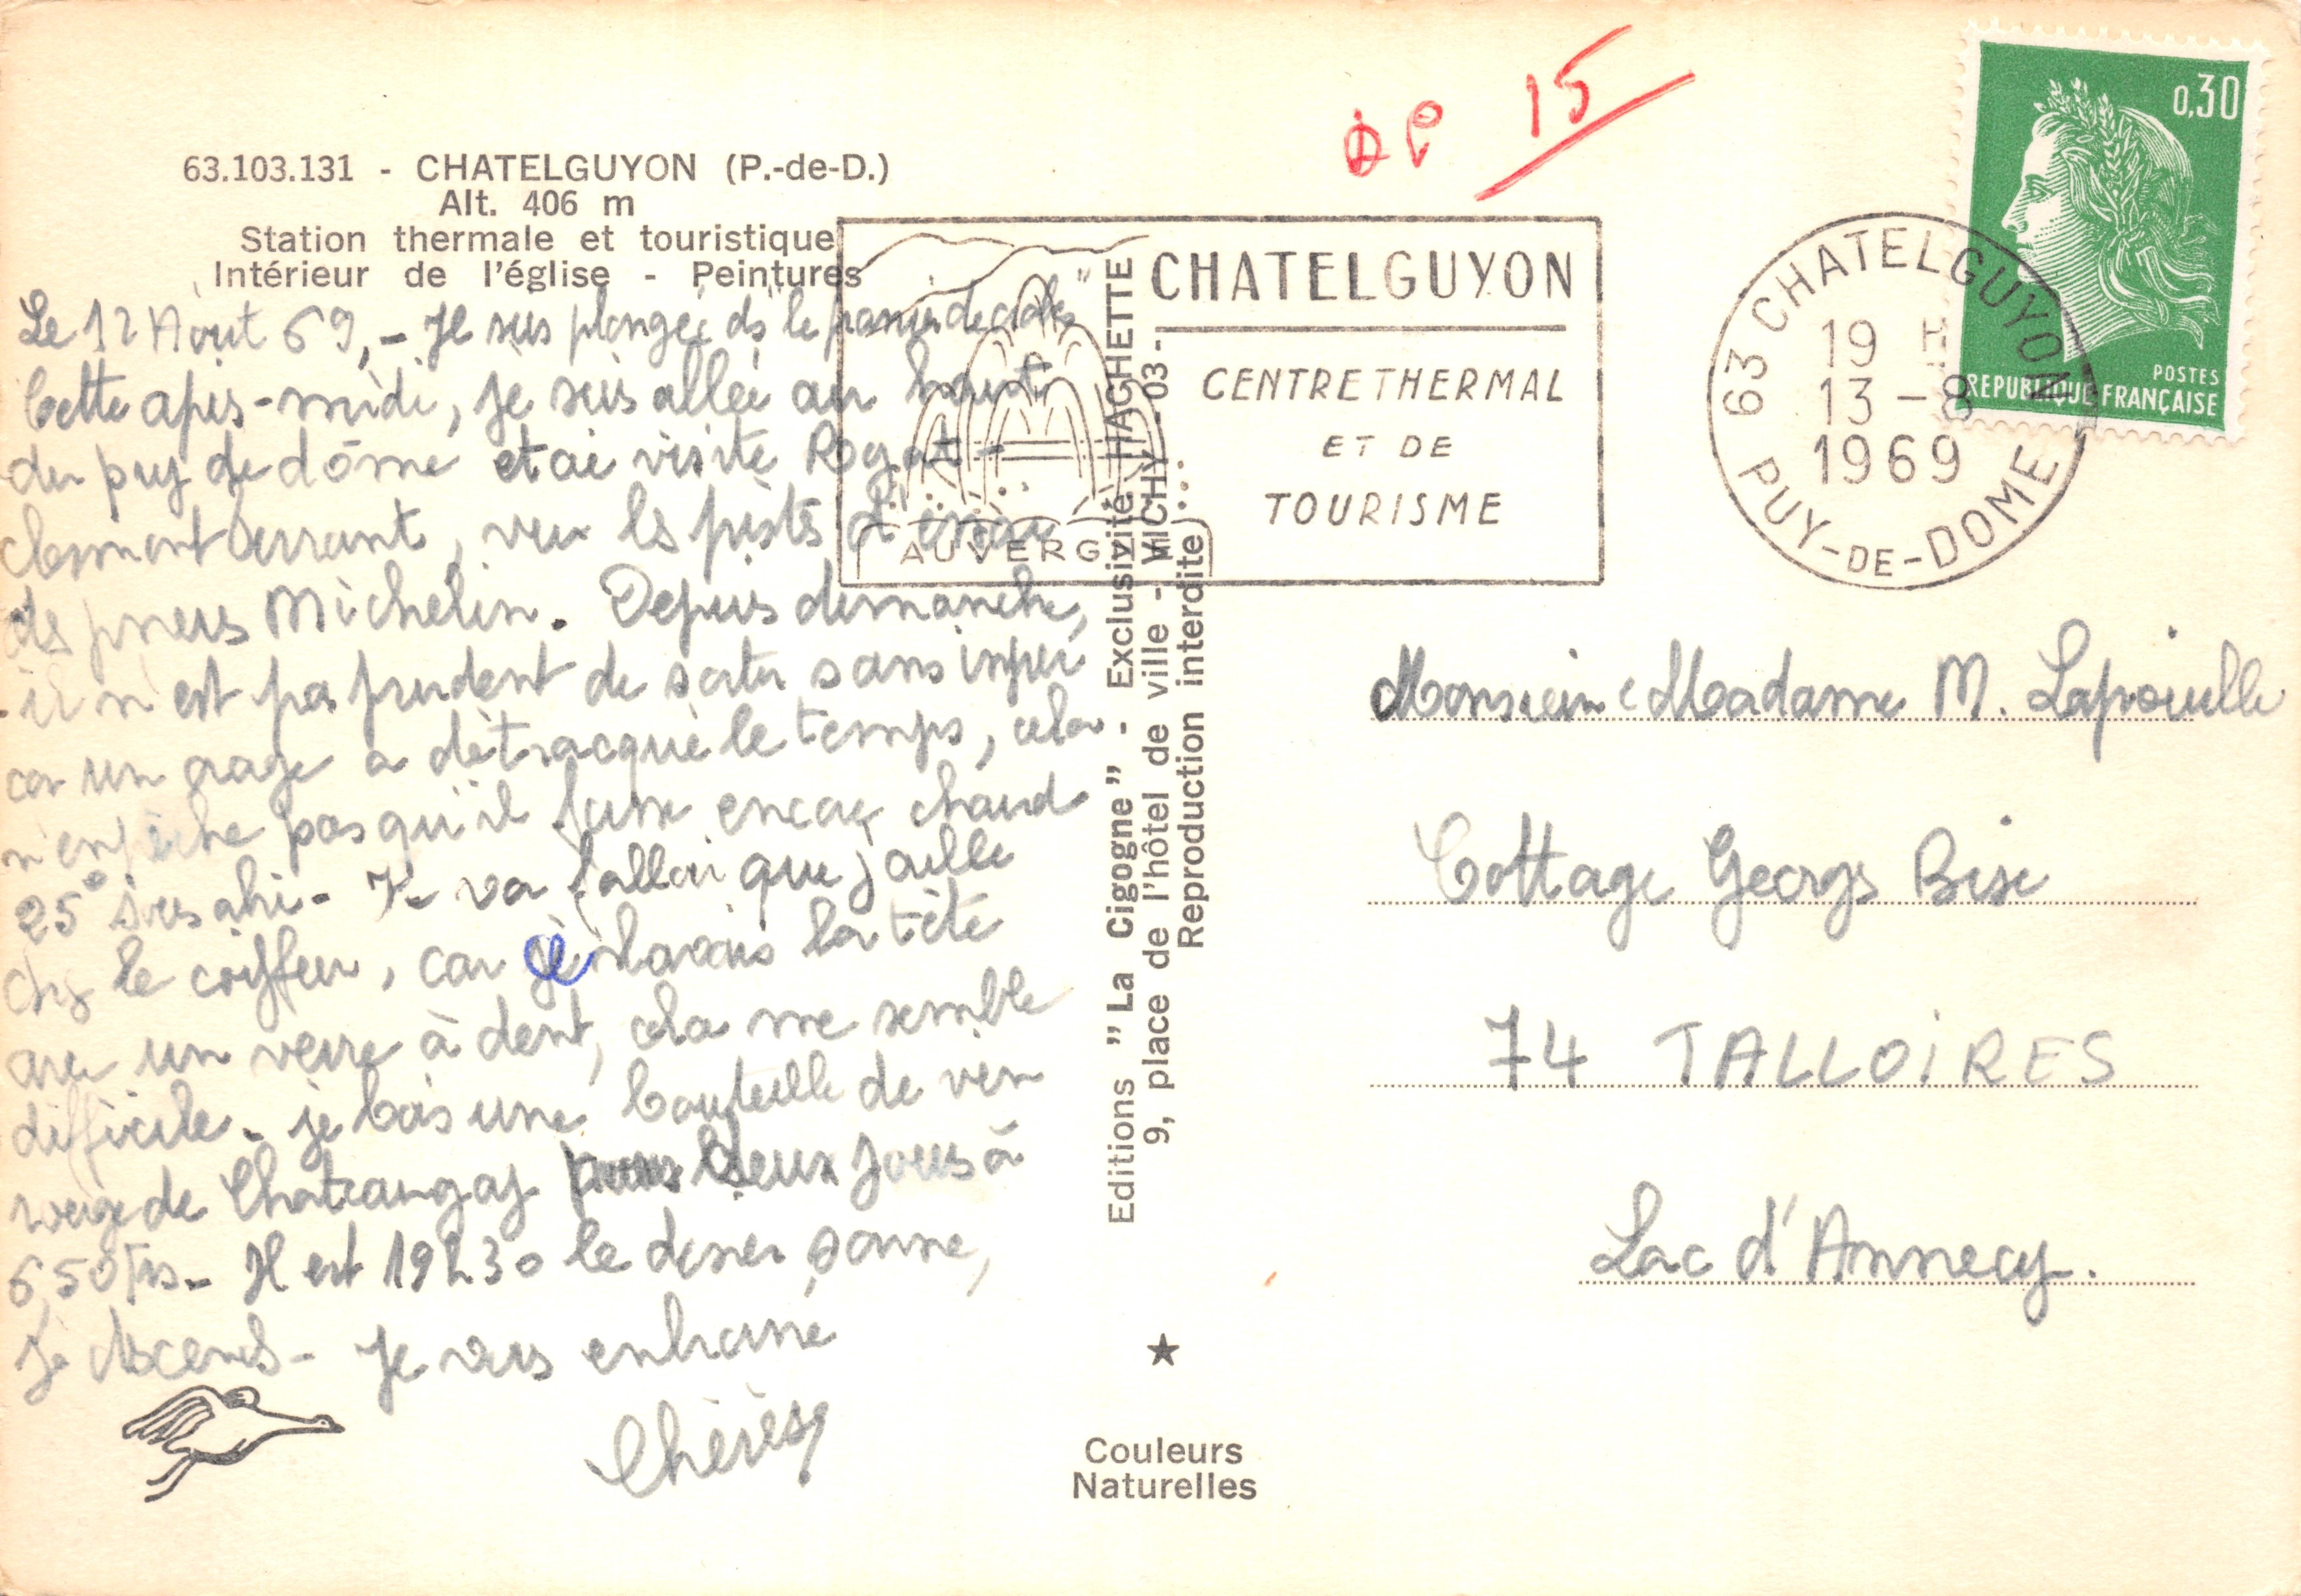 63.103.131 - CHATELGUYON (P.-de-D.)
Alt. 406 m
Station thermale et touristique
Intérieur de l'église - Peintures
Le 12 Août 69, - Je suis plongée ds "le panier de crabes"
Cette après-midi, je suis allée au haut
du puy de dôme et ai visité Royat -
clermont ferrant, vu les pistes d'essai
des pneus Michelin. Depuis dimanche,
il n'est pas prudent de sortir sans imper
car un orage a détracqué le temps, cela
n'empêche pas qu'il fasse encore chaud
25° à Il va falloir que j'aille
chez le coiffeur, car me laver la tête
avec un verre à dent, cela me semble
difficile. je bois une bouteille de vin
rouge de Chateaugay pour deux jours à
6,50 Frs. Il est 19h30 le diner sonne,
je descends - Je vais entrainé
Chérèsy
DP 15
0,30
POSTES
REPUBLIQUE FRANÇAISE
63 CHATELGUYON
19 H
13 - 8
1969
PUY-DE-DOME
CHATELGUYON
CENTRE THERMAL
ET DE
TOURISME
AUVERGNE
Editions "La Cigogne" - Exclusivité HACHETTE
9, place de l'hôtel de ville - VICHY - 03 -
Reproduction interdite
Monsieur e Madame M. Lapouille
Cottage Georges Bise
74 TALLOIRES
Lac d'Annecy.
★
Couleurs
Naturelles